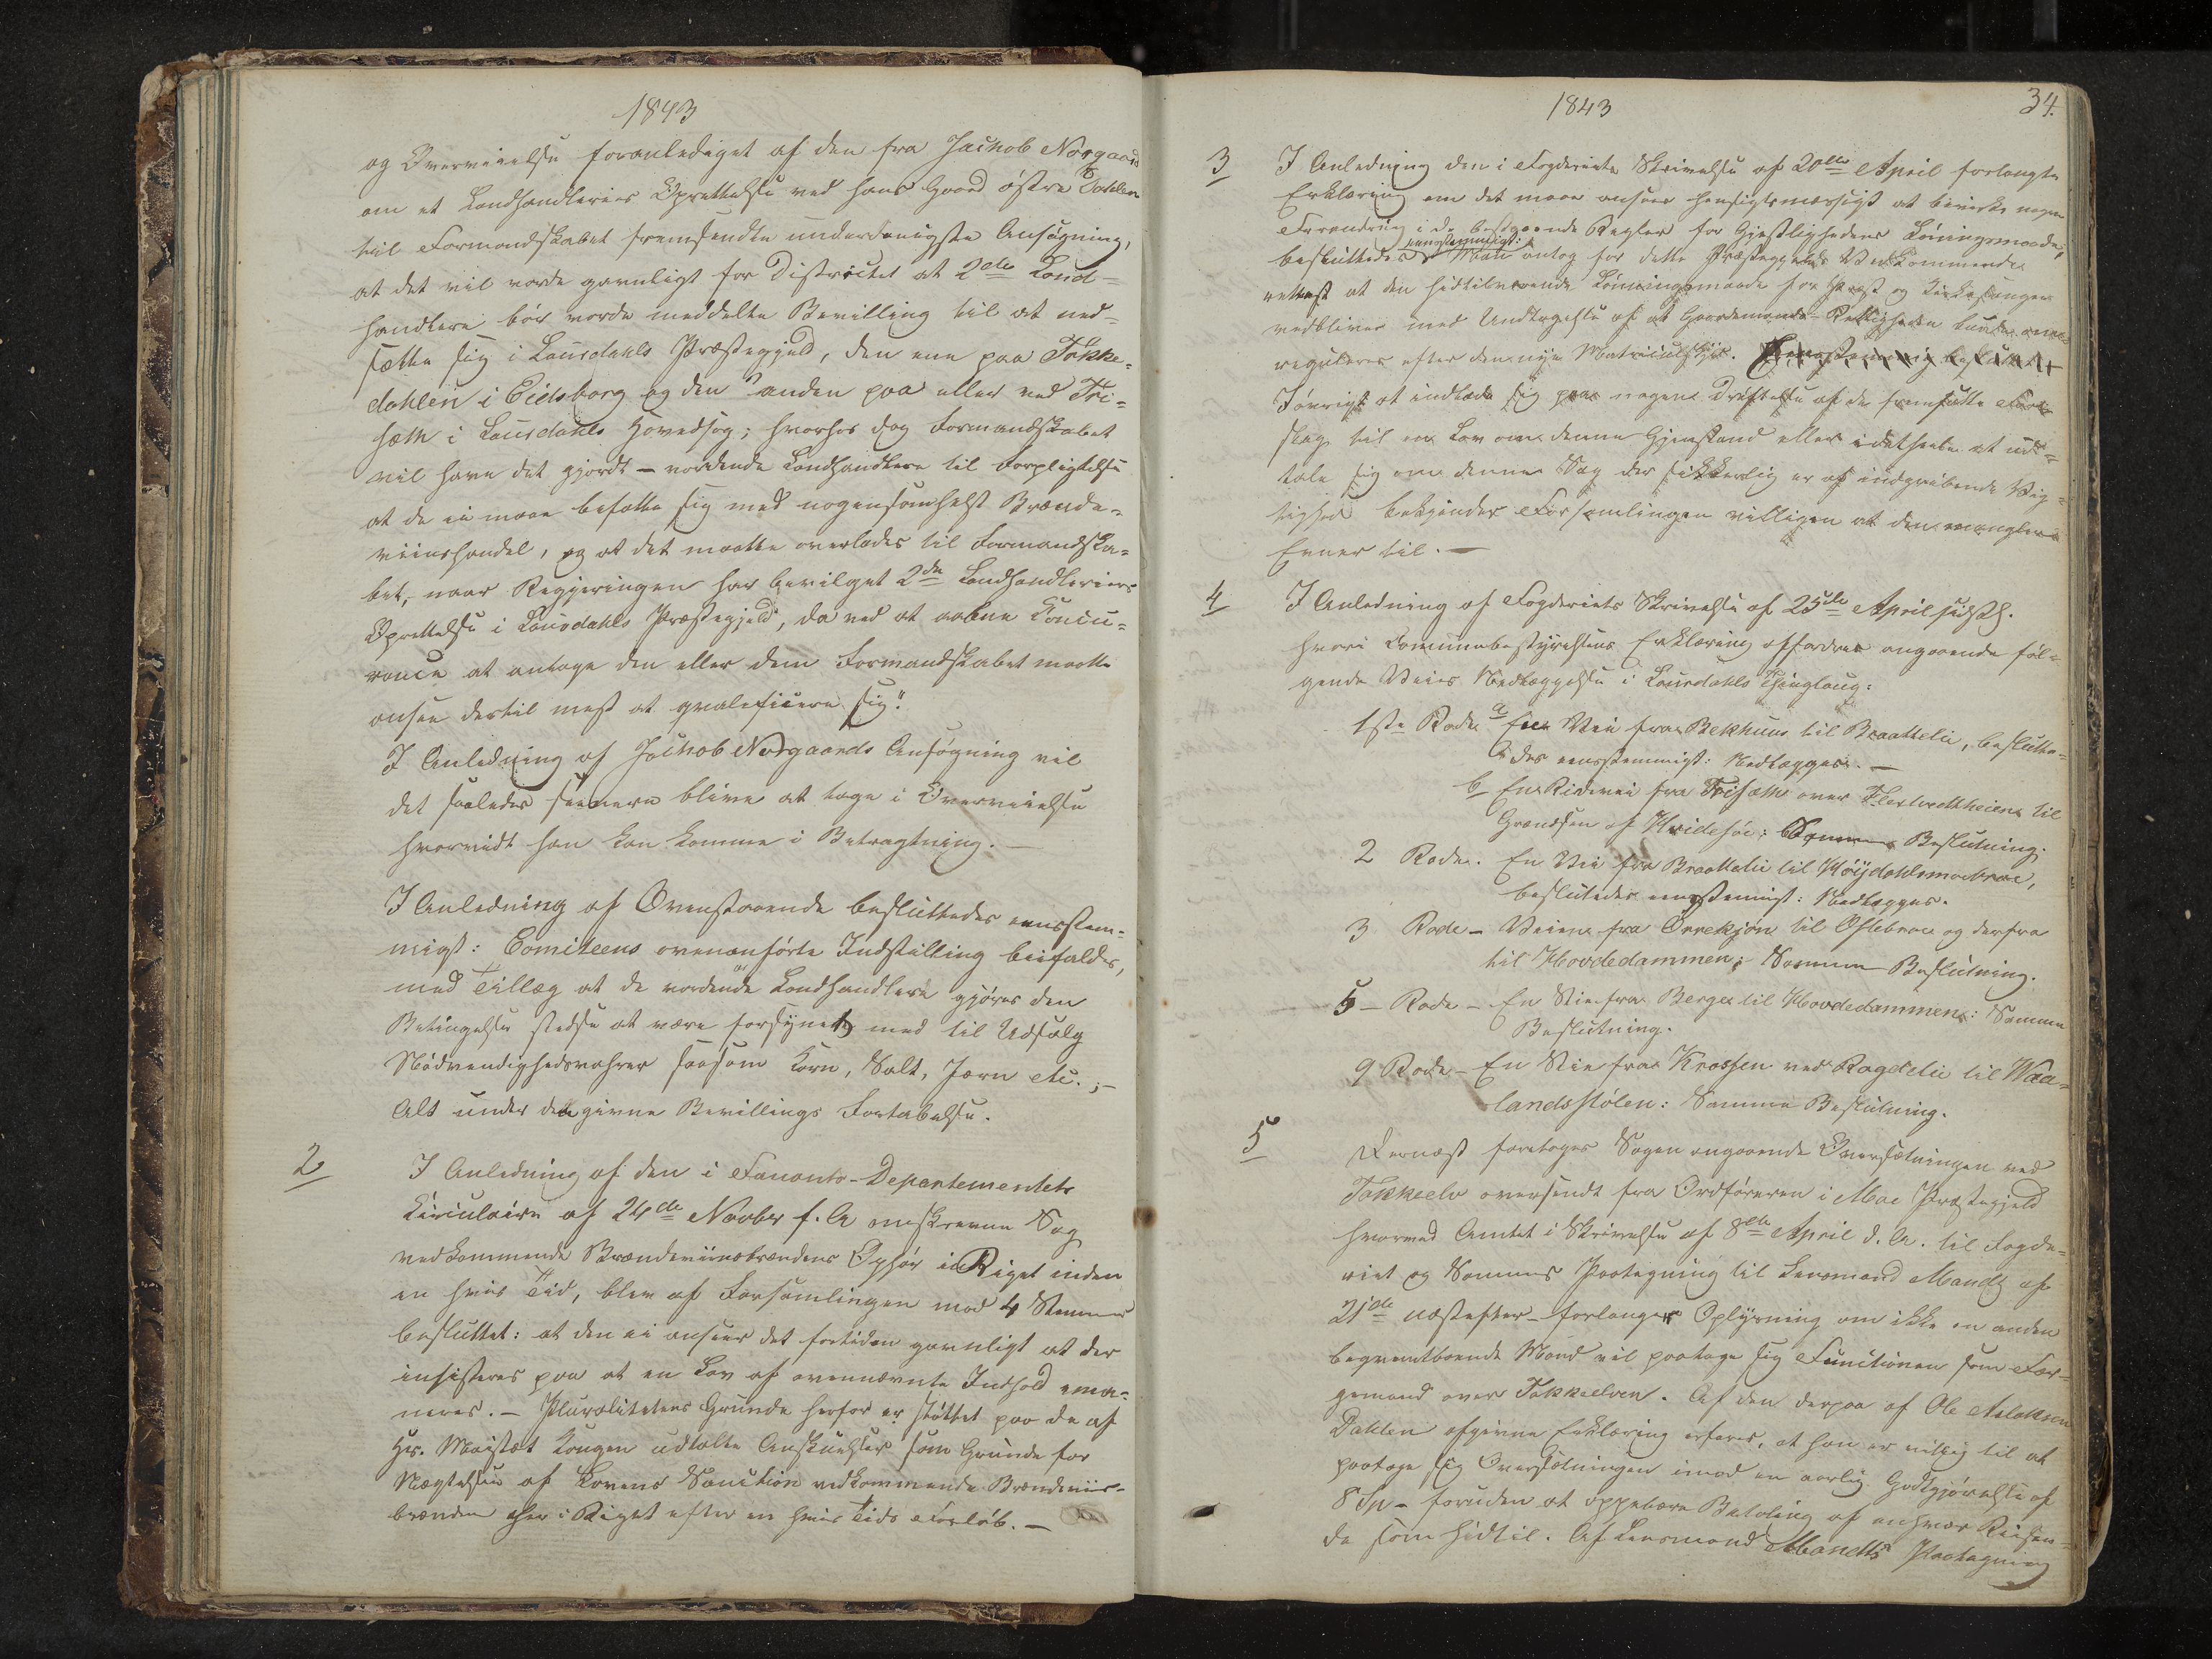 1843
og Overveielse foranlediget af den fra Jachob Norgaard
om et Landhandleries Oprettelse ved hans Gaard østre Dahlen
til Formandskabet fremsendte underdanigste Ansøgning,
at det vil vorde gavnligt for Districtet at 2de Land-
handlere bør vorde meddelte Bevilling til at ned-
sætte sig i Laurdahls Præstegjeld, den ene paa Tokke-
dahlen i Eidsborg og den anden paa eller ved Tri-
sæth i Laurdahls Hovedsog; hvorhos dog Formandskabet
vil have det gjordt – vordende Landhandlere til Forpligtelse
at de ei maae befatte sig med nogensomhelst Brænde-
viinshandel, og at det maatte overlades til Formandska-
bet, naar Regjeringen har bevilget 2de Landhandleriers
Oprettelse i Laurdahls Præstegjeld, da ved at aabne Concu-
rance at antage den eller dem Formandskabet maatte
ansee dertil mest at qvalificere sig."
I Anledning af Jachob Norgaards Ansøgning vil
det saaledes senere blive at tage i Overveielse
hvorvidt han kan komme i Betragtning. –
I Anledning af Ovenstaaende besluttedes eensstem-
migt: Comiteens ovenanførte Indstilling beifaldes,
med Tillæg at de vordende Landhandlere gjøres den
Betingelse stedse at være forsynet med til Udsalg
Nødvendighedsvahrer saasom Korn, Salt, Jærn etc.; –
Alt under den givne Bevillings Fortabelse.
2 I Anledning af den i Finants-Departementets
Circulaire af 24de Novbr f. A omskrevne Sag
vedkommende Brændeviinsbrændens Ophør i Riget inden
en hvis Tid, blev af Forsamlingen mod 4 Stemmer
besluttet: at den ei anseer det fortiden gavnligt at der
insisteres paa at en Lov af ovennævnte Indhold ema-
neres. – Pluralitetens Grunde herfor er støttet paa de af
Hs. Maistæt Kongen udtalte Anskuelser som Grunde for
Nægtelsen af Lovens Sanction vedkommende Brændeviis-
brænden her i Riget efter en hvis Tids Forløb. –
1843
34.
3 I Anledning den i Fogderiets Skrivelse af 20de April forlangte
Erklæring om det maae ansees hensigtsmæssigt at bevirke nogen
Forandring i de bestaaende Regler for Gjestlighedens Lønningsmaade,
eensstemmigt:
besluttedes Man antog for dette Præstegjelds Vedkommende
rettest at den hidtilværende Lønningsmaade for Præst og Kirkesanger
vedbliver med Undtagelse af at Gaardmands-Rettigheden
reguleres efter den nye Matriculskyld.
Iøvrigt at indlade sig paa nogen Drøftelse af de fremsatte For-
slag til en Lov om denne Gjenstand eller i detheele at ud-
tale sig om denne Sag der sikkerlig er af indgribende Vig-
tighed bekjender Forsamlingen villigen at den mangler
Evner til. –
4 I Anledning af Fogderiets Skrivelse af 25de April sidstl.
hvori Communebestyrelsens Erklæring affordres angaaende føl-
gende Veies Nedlæggelse i Laurdahls Thinglaug:
1ste Rode a En Vei fra Bekhuus til Braattelie, beslutte-
des eensstemmigt: Nedlægges. –
b En Ridevei fra Trisæth over til
Grændsen af Hvidesøe: Samme Beslutning.
2 Rode. En Vei fra Braattelie til Høydahlsmoebroe,
besluttedes eensstemmigt: Nedlægges.
3 Rode – Veien fra Orrekjøn til Oftebroe og derfra
til Hovdedammen; Samme Beslutning.
5 – Rode – En Vei fra Berge til Hovdedammen: Samme
Beslutning.
9 Rode – En Vei fra Krossen ved Ragdelie til Waa-
landsstølen: Samme Beslutning.
5 Dernæst foretoges Sagen angaaende Oversætningen ved
Tokkeelv oversendt fra Ordføreren i Moe Præstegjeld
hvorved Amtet i Skrivelse af 8de April d. A. til Fogde-
riet og Sammes Paategning til Lensmand Mandt af
21de næstefter – forlanger Oplysning om ikke en anden
beqvemtboende Mand vil paatage sig Functionen som Fær-
gemand over Tokkeelven. Af den derpaa af Ole Aslaksen
Dahlen afgivne Erklæring erfares, at han er villig til at
paatage sig Oversætningen imod en aarlig Godtgjørelse af
8 Sp – foruden at oppebære Betaling af enhver Reisen-
de som hidtil. Af Lensmand Mandts Paategning